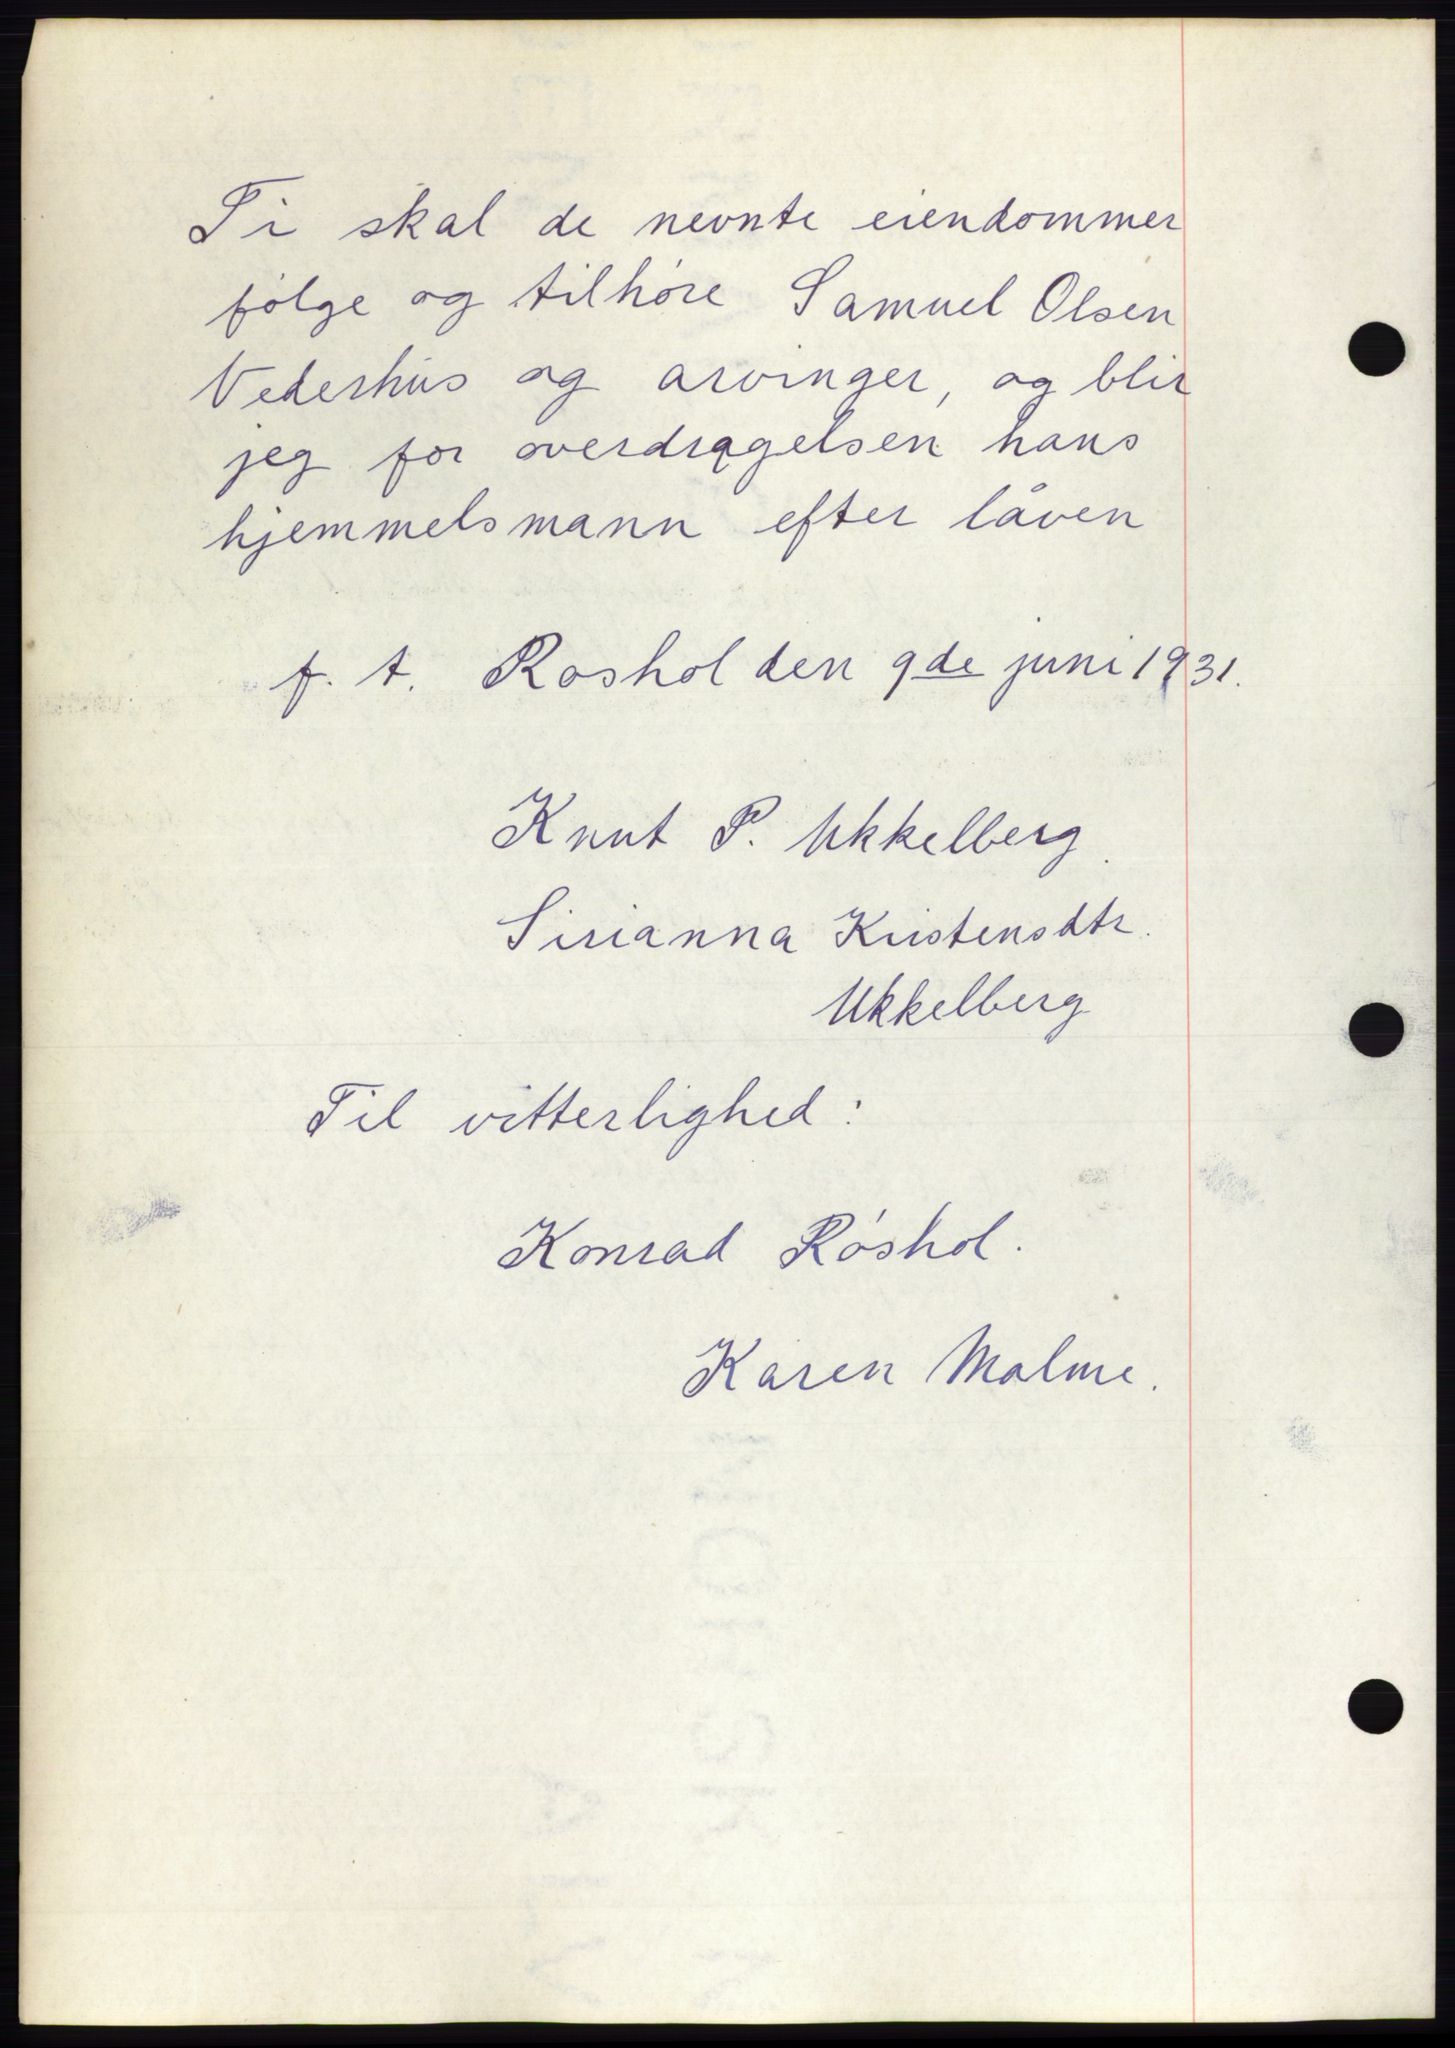 Ti skal de nevnte eiendommer
følge og tilhøre Samuel Olsen
Vederhus og arvinger, og blir
jeg for overdragelsen hans
hjemmelsmann efter låven
f. t. Røshol den 9de juni 1931.
Knut P. Ukkelberg
Sirianna Kristensdtr.
Ukkelberg
Til vitterlighed:
Konrad Røshol.
Karen Malme.